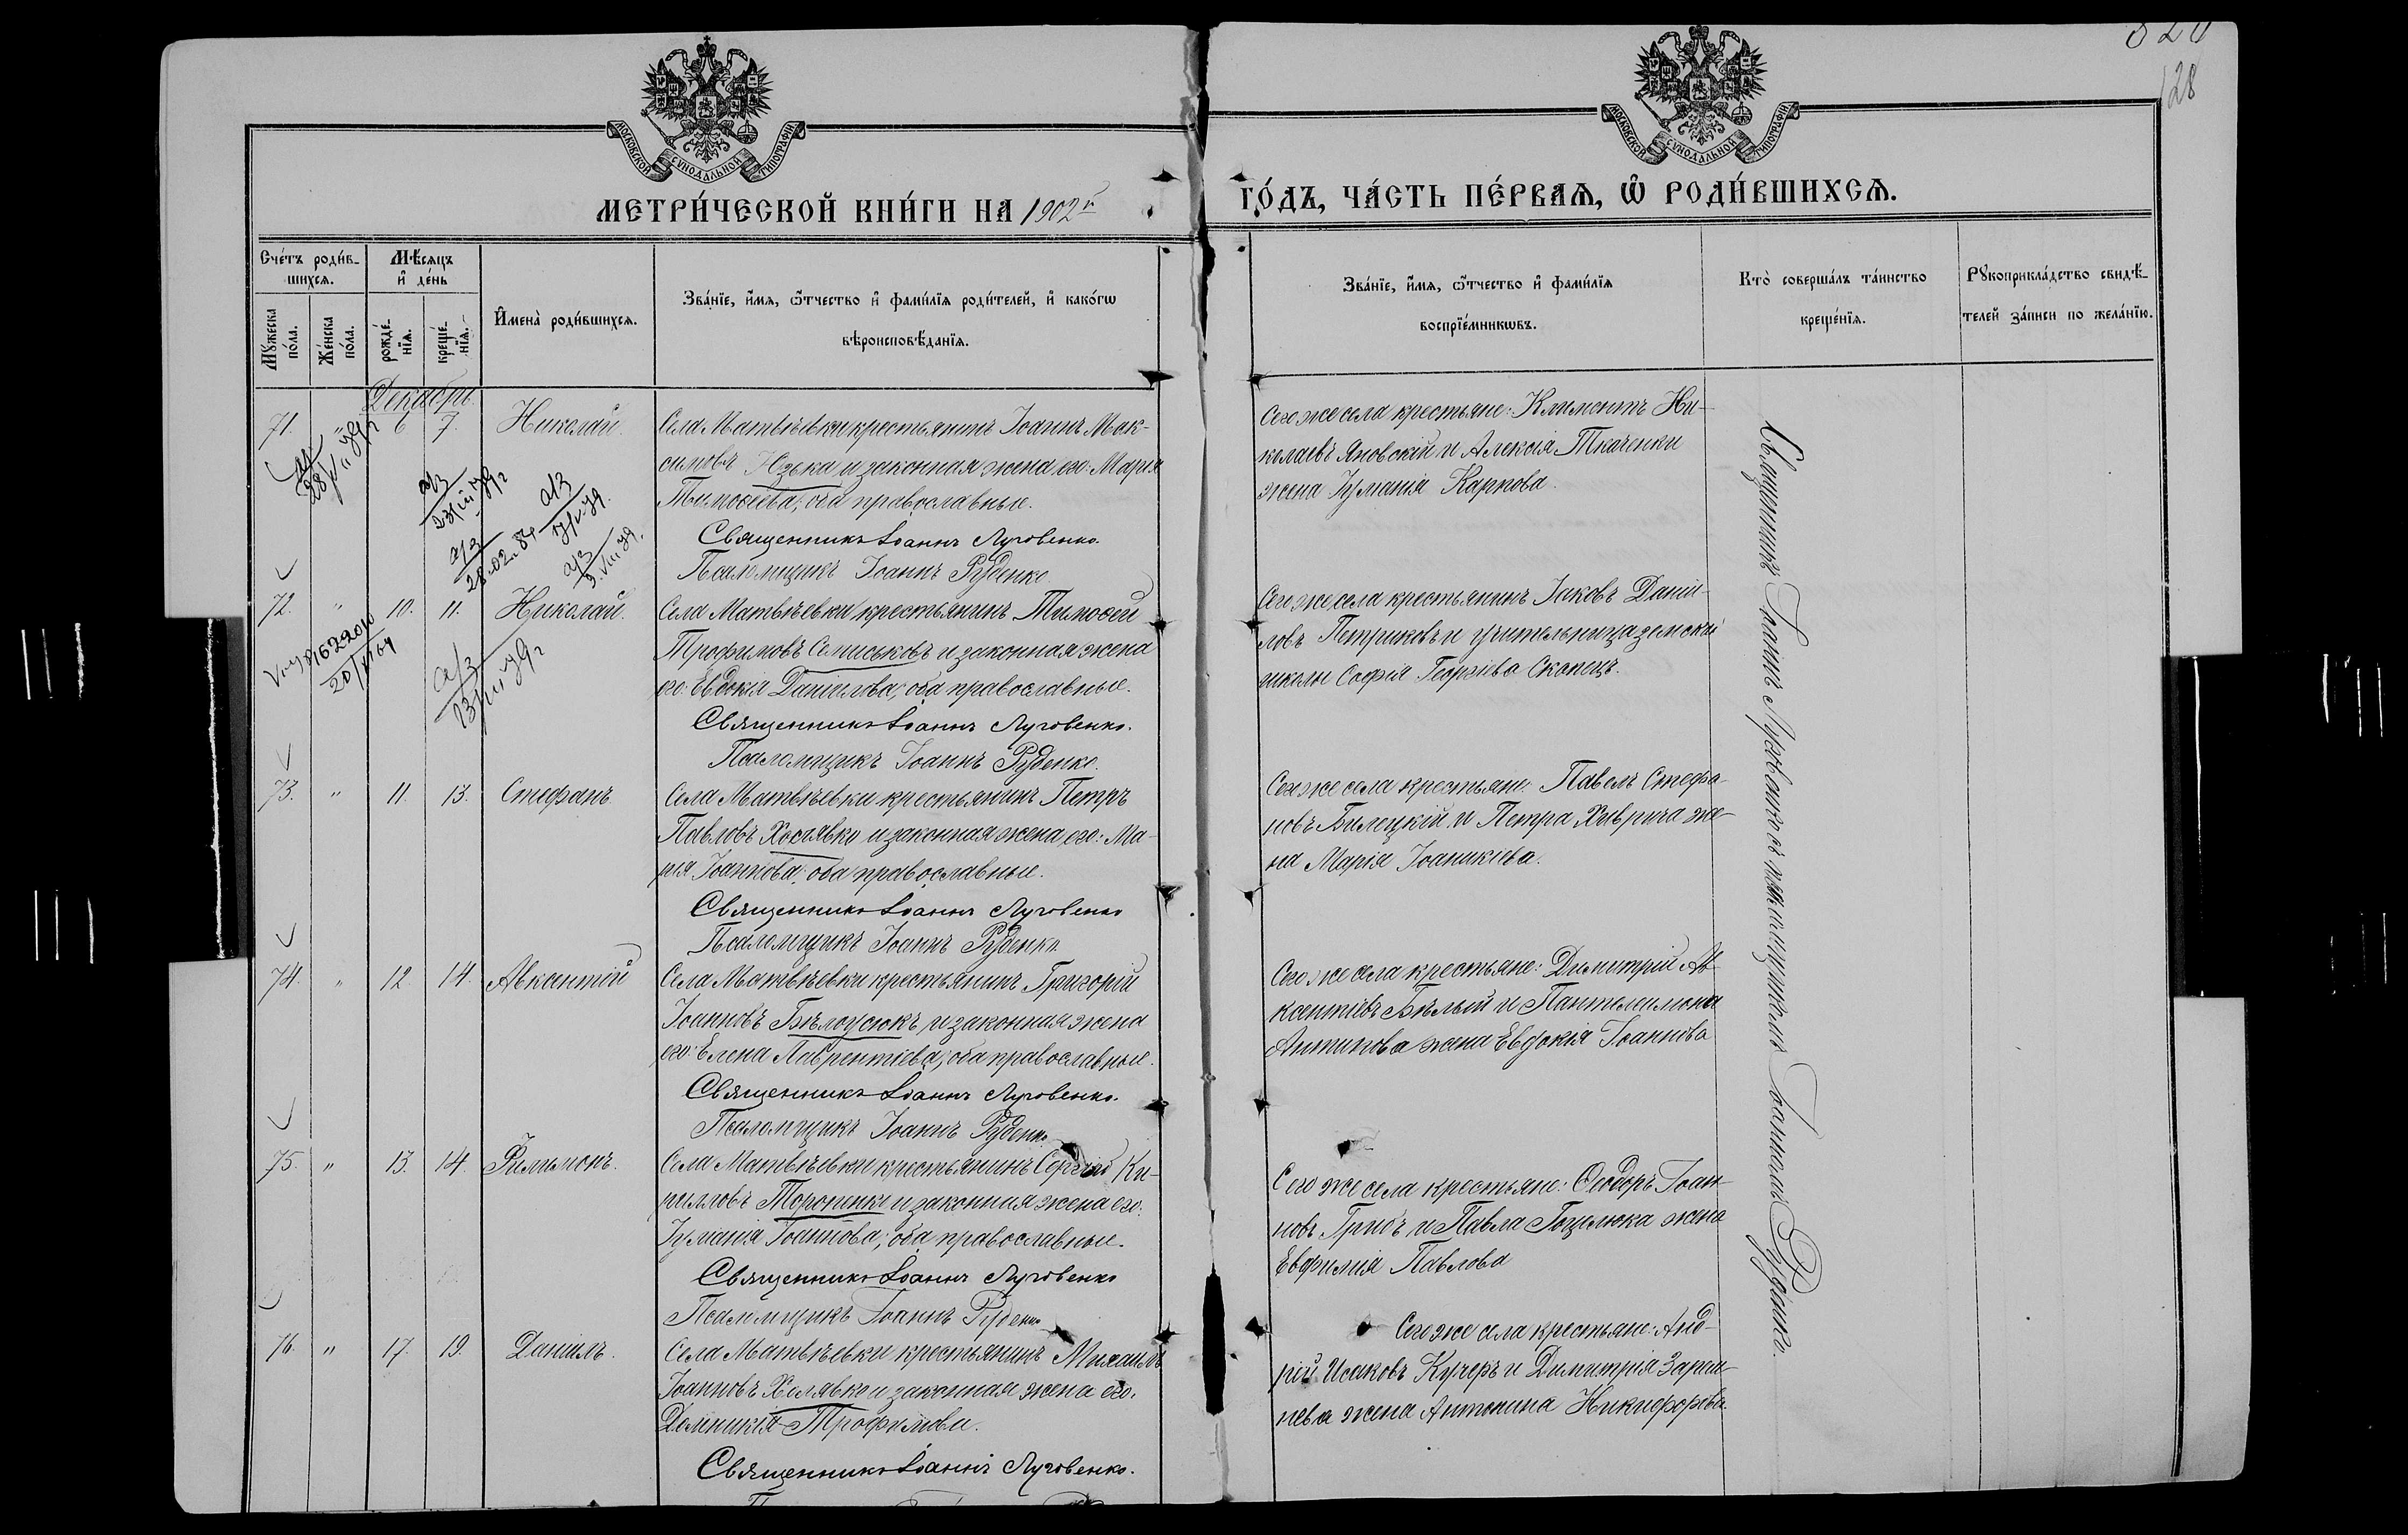 328
128
МОСКОВСКОЙ СѴНОДАЛЬНОЙ ТИПОГРАФІИ
МОСКОВСКОЙ СѴНОДАЛЬНОЙ ТИПОГРАФІИ
МЕТРИ́ЧЕСКОЙ КНИ́ГИ НА 1902 г.
ГО́ДЪ, ЧА́СТЬ ПЕ́РВАЯ, Ѡ҆ РОДИ́ВШИХСЯ.
Сче́тъ роди́в-
шихся.
Мꙋ́жеска по́ла.
Же́нска по́ла.
Мѣ́сяцъ
и҆ де́нь
рожде́-
нїя.
креще́-
нїя.
И҆мена̀ роди́вшихся.
Зва́нїе, и҆́мя, ѻ҆́тчество и҆ фами́лїя роди́телей, и҆ како́гѡ
вѣроисповѣ́данїя.
Зва́нїе, и҆́мя, ѻ҆́тчество и҆ фами́лїя
воспрїе́мникѡвъ.
Кто̀ соверша́лъ та́инство
креще́нїя.
Рꙋкоприкла́дство свидѣ́-
телей за́писи по жела́нїю.
Декабрь
71. " 6 7. Николай.
Села Матвѣевки крестьянинъ Іоаннъ Мак-
симовъ Юзька и законная жена его: Марія
Тимоѳеева; оба православные.
Священникъ Іоаннъ Луговенко.
Псаломщикъ Іоаннъ Руденко
Сего же села крестьяне: Климентъ Ни-
колаевъ Яновскій и Алексія Ткаченки
жена Іуліанія Карпова.
72. " 10. 11. Николай.
Села Матвѣевки крестьянинъ Тимоѳей
Трофимовъ Семиськовъ и законная жена
его: Евдокія Даніилова; оба православные.
Священникъ Іоаннъ Луговенко.
Псаломщикъ Іоаннъ Руденко.
Сего же села крестьянинъ Іаковъ Даніи-
ловъ Петриковъ и учительница земской
школы Софія Георгіева Скопецъ.
73. " 11. 13. Стефанъ
Села Матвѣевки крестьянинъ Петръ
Павловъ Халявко и законная жена его: Ма-
рія Іоаннова; оба православные.
Священникъ Іоаннъ Луговенко
Псаломщикъ Іоаннъ Руденко
Сего же села крестьяне: Павелъ Стефа-
новъ Билецкій и Петра Хиврича же-
на Марія Іоаникіева.
74. " 12 14. Авксентій
Села Матвѣевки крестьянинъ Григорій
Іоанновъ Бѣлоусюкъ и законная жена
его: Елена Лаврентіева; оба православные.
Священникъ Іоаннъ Луговенко.
Псаломщикъ Іоаннъ Руденко
Сего же села крестьяне: Димитрій Ав-
ксентіевъ Бѣлый и Пантелеимона
Антипова жена Евдокія Іоаннова
75. " 13. 14. Филимонъ.
Села Матвѣевки крестьянинъ Сергій Ки-
рилловъ Торопенко и законная жена его:
Іуліанія Іоаннова; оба православные.
Священникъ Іоаннъ Луговенко
Псаломщикъ Іоаннъ Руденко
Сего же села крестьяне: Ѳеодоръ Іоан-
новъ Грибъ и Павла Гоцелюка жена
Евфимія Павлова
76. " 17. 19. Даніилъ.
Села Матвѣевки крестьянинъ Михаилъ
Іоанновъ Халявко и законная жена его:
Домникія Трофимова.
Священникъ Іоаннъ Луговенко.
Сего же села крестьяне: Анд-
рій Исаковъ Кучеръ и Димитрія
жена Антонина Никифорова.
Священникъ Іоаннъ Луговенко съ псаломщикомъ Іоанномъ Руденко.